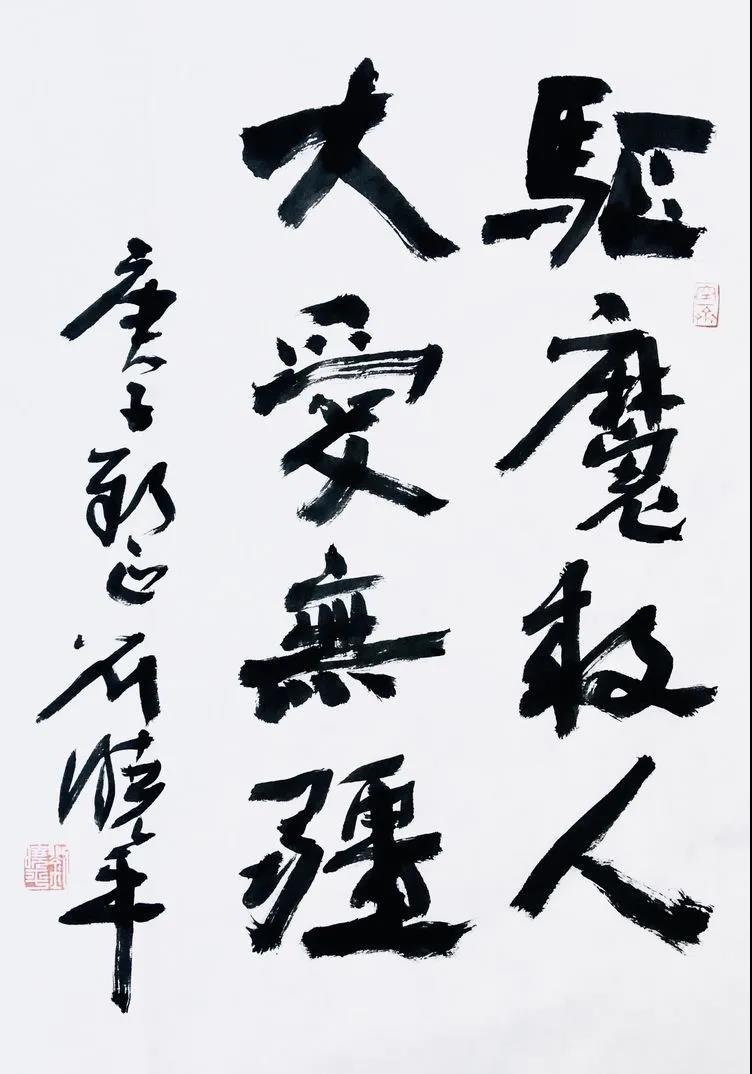 驅魔救人
大愛無疆
庚子新正 曉年